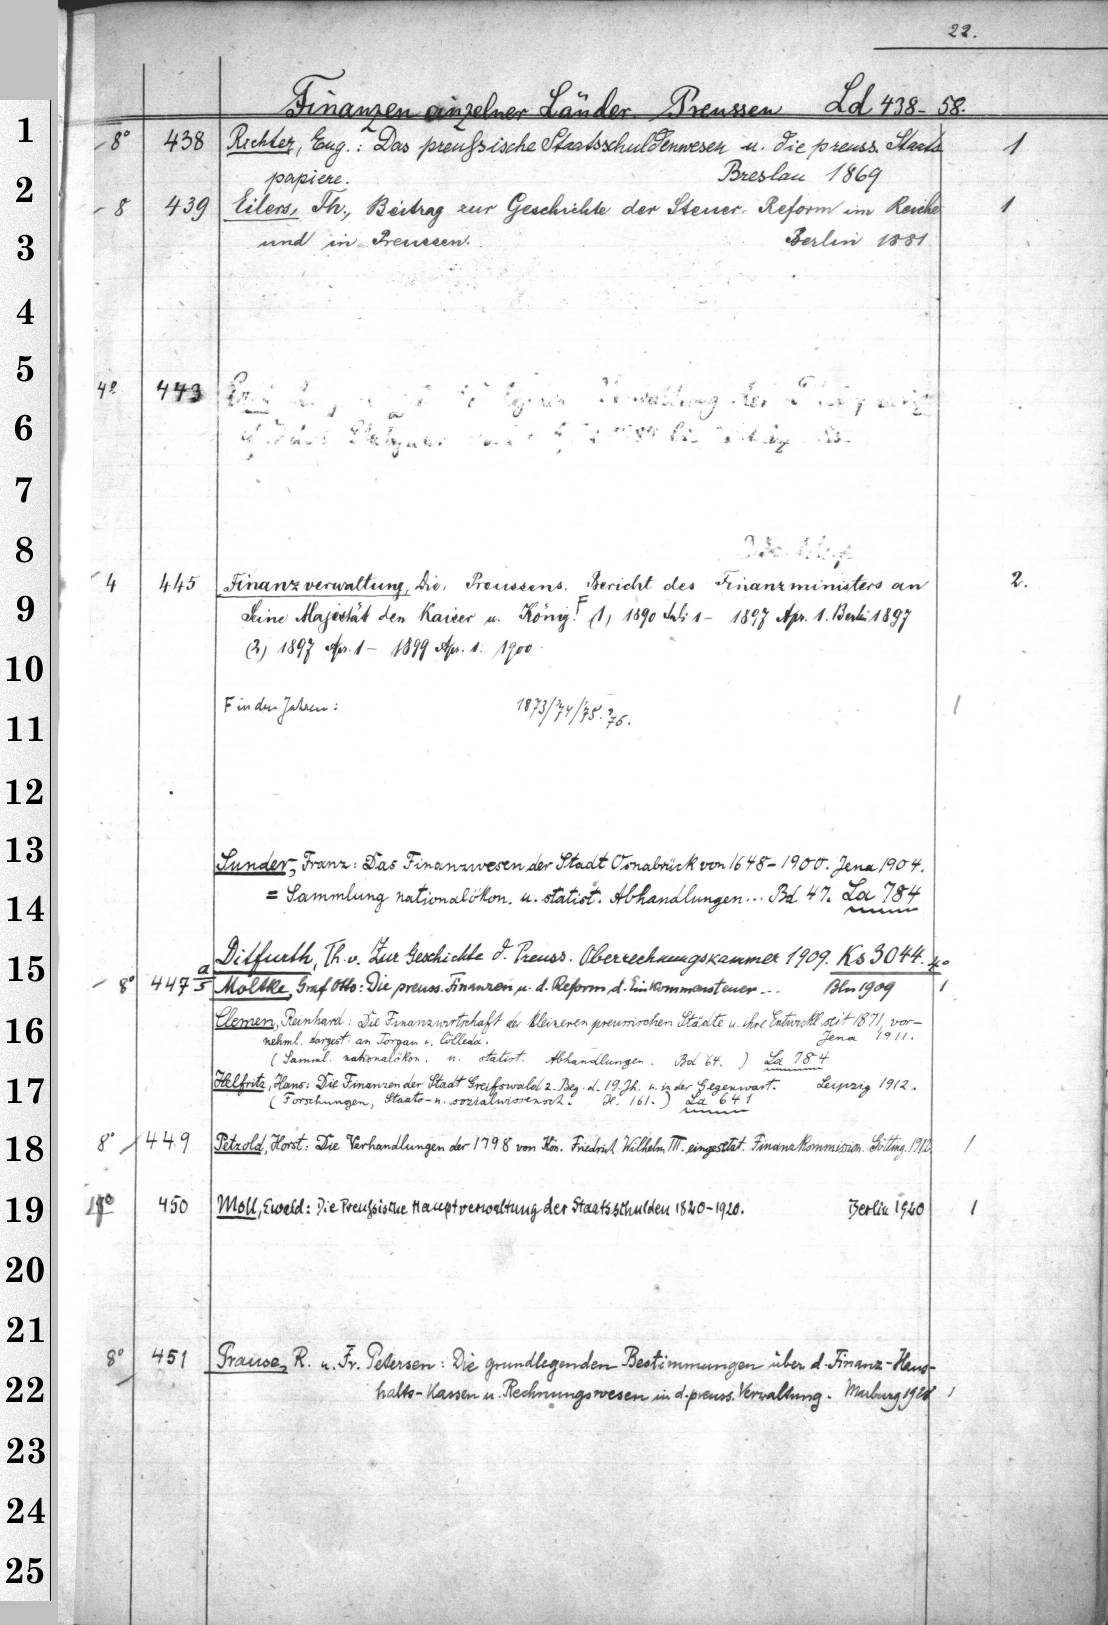 22.
Finanzen einzelner Länder. Preussen Ld 438-58.
1
8° 438 Richter, Eug.: Das preußsische Staatsschuldenwesen u. die preuss. Staats 1
2
papiere. Breslau 1869
8 439 Eilers, Th., Beitrag zur Geschichte der Steuer-Reform im Reiche 1
3
und in Preussen. Berlin 1881
4
5
4° 443 Verwaltung der
6
7
8
4 445 Finanzverwaltung, Die, Preussens. Bericht des Finanzministers an 2.
9
Seine Majestät den Kaiser u. König. F (1) 1890 Juli 1 - 1897 Apr. 1. Berlin 1897
10
(2) 1897 Apr. 1 - 1899 Apr. 1. 1900.
F in den Jahren: 1873/74/75.76. 1
11
12
13
Sunder, Franz: Das Finanzwesen der Stadt Osnabrück von 1648-1900. Jena 1904.
14
= Sammlung nationalökon. u. statist. Abhandlungen... Bd 47. La 784
15
Ditfurth, Th. v. Zur Geschichte d. Preuss. Oberrechnungskammer 1909. Ks 3044. 4°
8° 447 a/5 Moltke, Graf Otto: Die preuss. Finanzen u. d. Reform d. Einkommensteuer... Bln 1909 1
16
Clemen, Reinhard: Die Finanzwirtschaft der kleineren preussischen Städte u. ihre Entwickl. seit 1871, vor-
nehml. dargest. an Torgau u. Cölleda. Jena 1911.
(Samml. nationalökon. u. statist. Abhandlungen. Bd 64.) La 784
17
Helfritz, Hans: Die Finanzen der Stadt Greifswald z. Beg. d. 19. Jh. u. in der Gegenwart. Leipzig 1912.
(Forschungen, Staats- u. sozialwissensch. H. 161.) La 641
18
8° 449 Petzold, Horst: Die Verhandlungen der 1798 von Kön. Friedrich Wilhelm III. eingesetzt. Finanzkommission. Götting. 1912. 1
19
450 Moll, Ewald: Die Preußsische Hauptverwaltung der Staatsschulden 1820-1920. Berlin 1920 1
20
21
8° 451 Prause, R. u. Fr. Petersen: Die grundlegenden Bestimmungen über d. Finanz-Haus-
22
halts-Kassen u. Rechnungswesen in d. preuss. Verwaltung. Marburg 1928 1
23
24
25